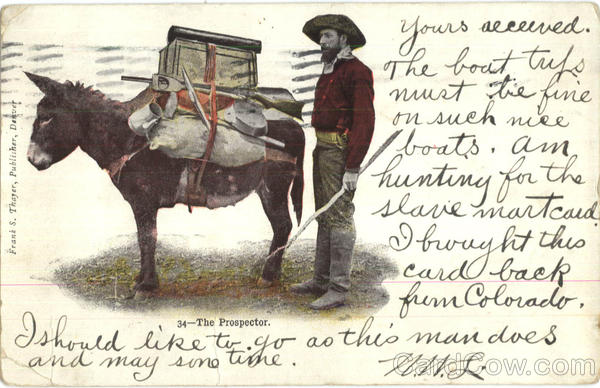 Yours received.
The boat trips
must be fine
on such nice
boats. Am
hunting for the
slave mart card.
I bought this
card back
from Colorado.
Frank S. Thayer, Publisher, Denver
34—The Prospector.
I should like to go as this man does
and may some time.
CardCow.com